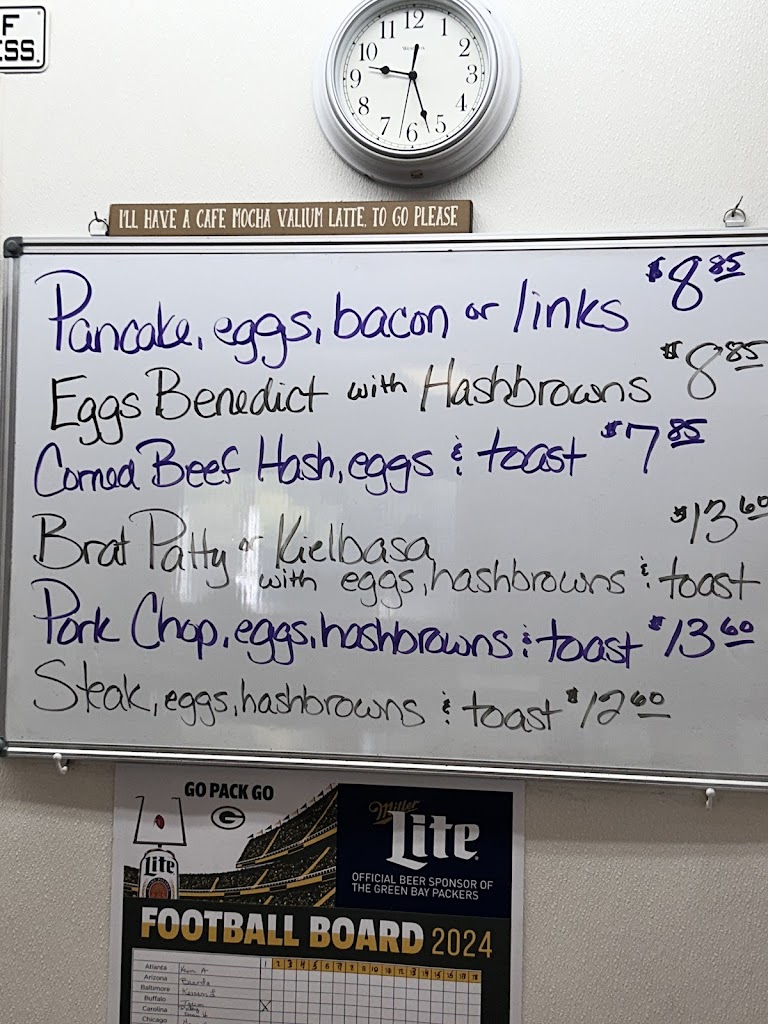 F
ESS.
11 12 1
10 2
9 3
8 4
7 6 5
I'LL HAVE A CAFE MOCHA VALIUM LATTE, TO GO PLEASE
Pancake, eggs, bacon or links $8 85
Eggs Benedict with Hashbrowns $8 85
Corned Beef Hash, eggs & toast $7 85
Brat Patty or Kielbasa $13 60
with eggs, hashbrowns & toast
Pork Chop, eggs, hashbrowns & toast $13 60
Steak, eggs, hashbrowns & toast $12 60
GO PACK GO
G
Miller
Lite
Lite
OFFICIAL BEER SPONSOR OF
THE GREEN BAY PACKERS
FOOTBALL BOARD 2024
1 2 3 4 5 6 7 8 9 10 11 12 13 14 15 16 17 18
Atlanta
Arizona
Baltimore
Buffalo
Carolina X
Chicago